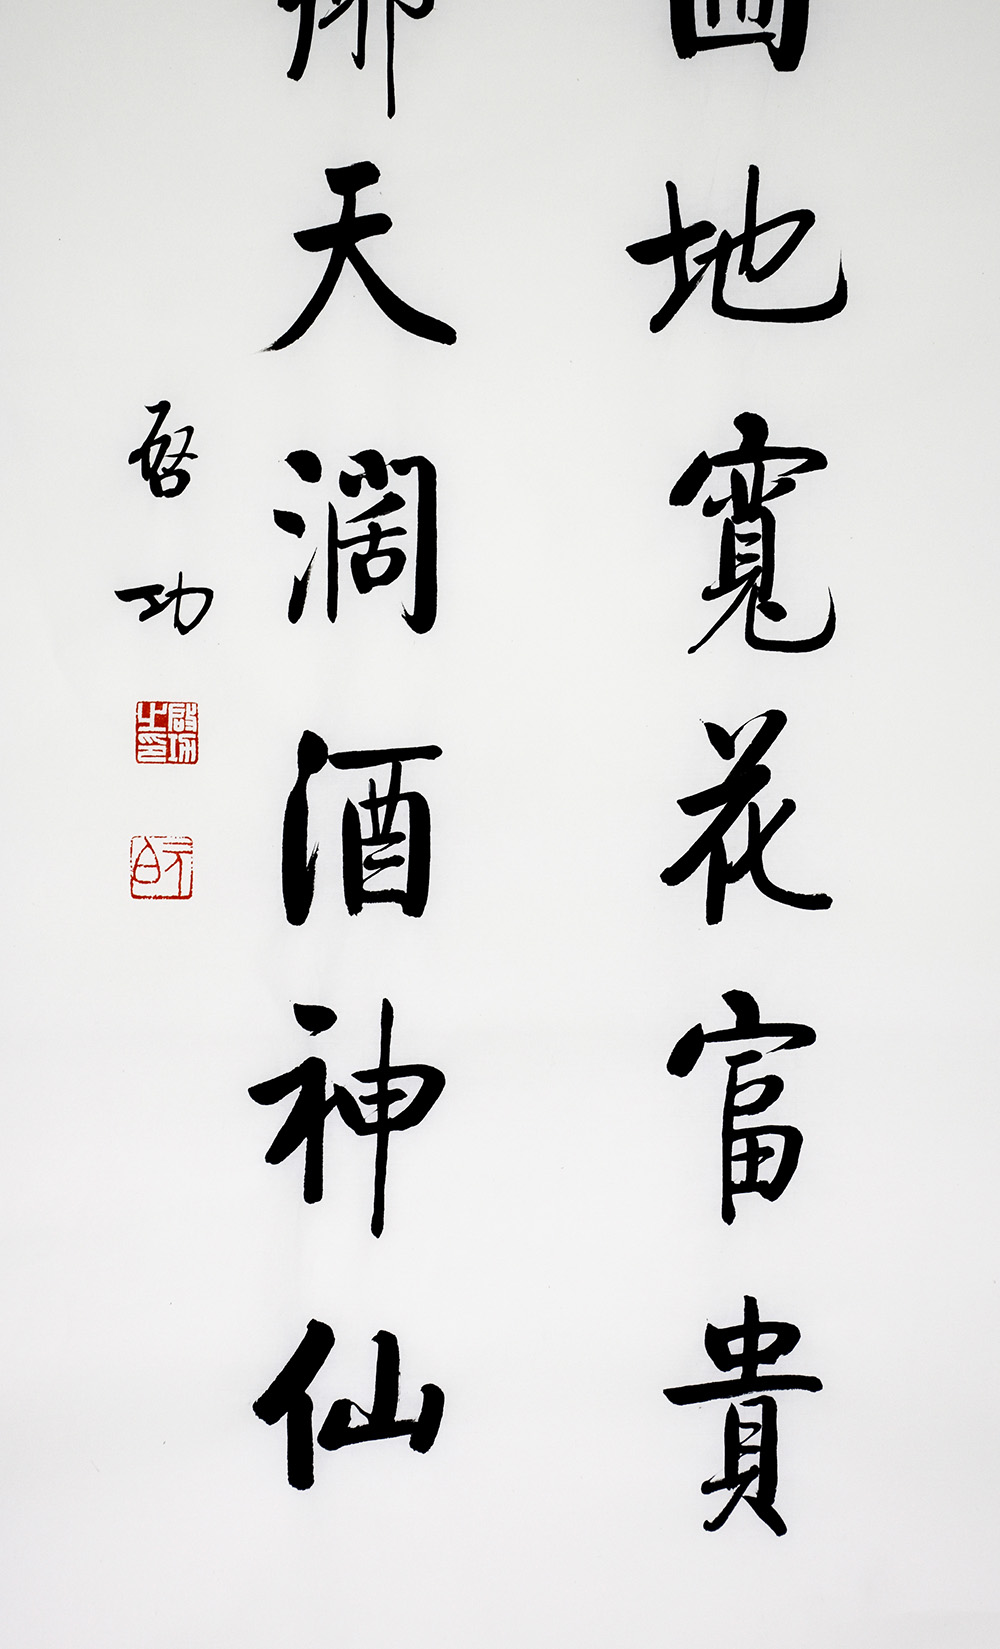 地寬花富貴
天濶酒神仙
啓功
啓功之印
元白